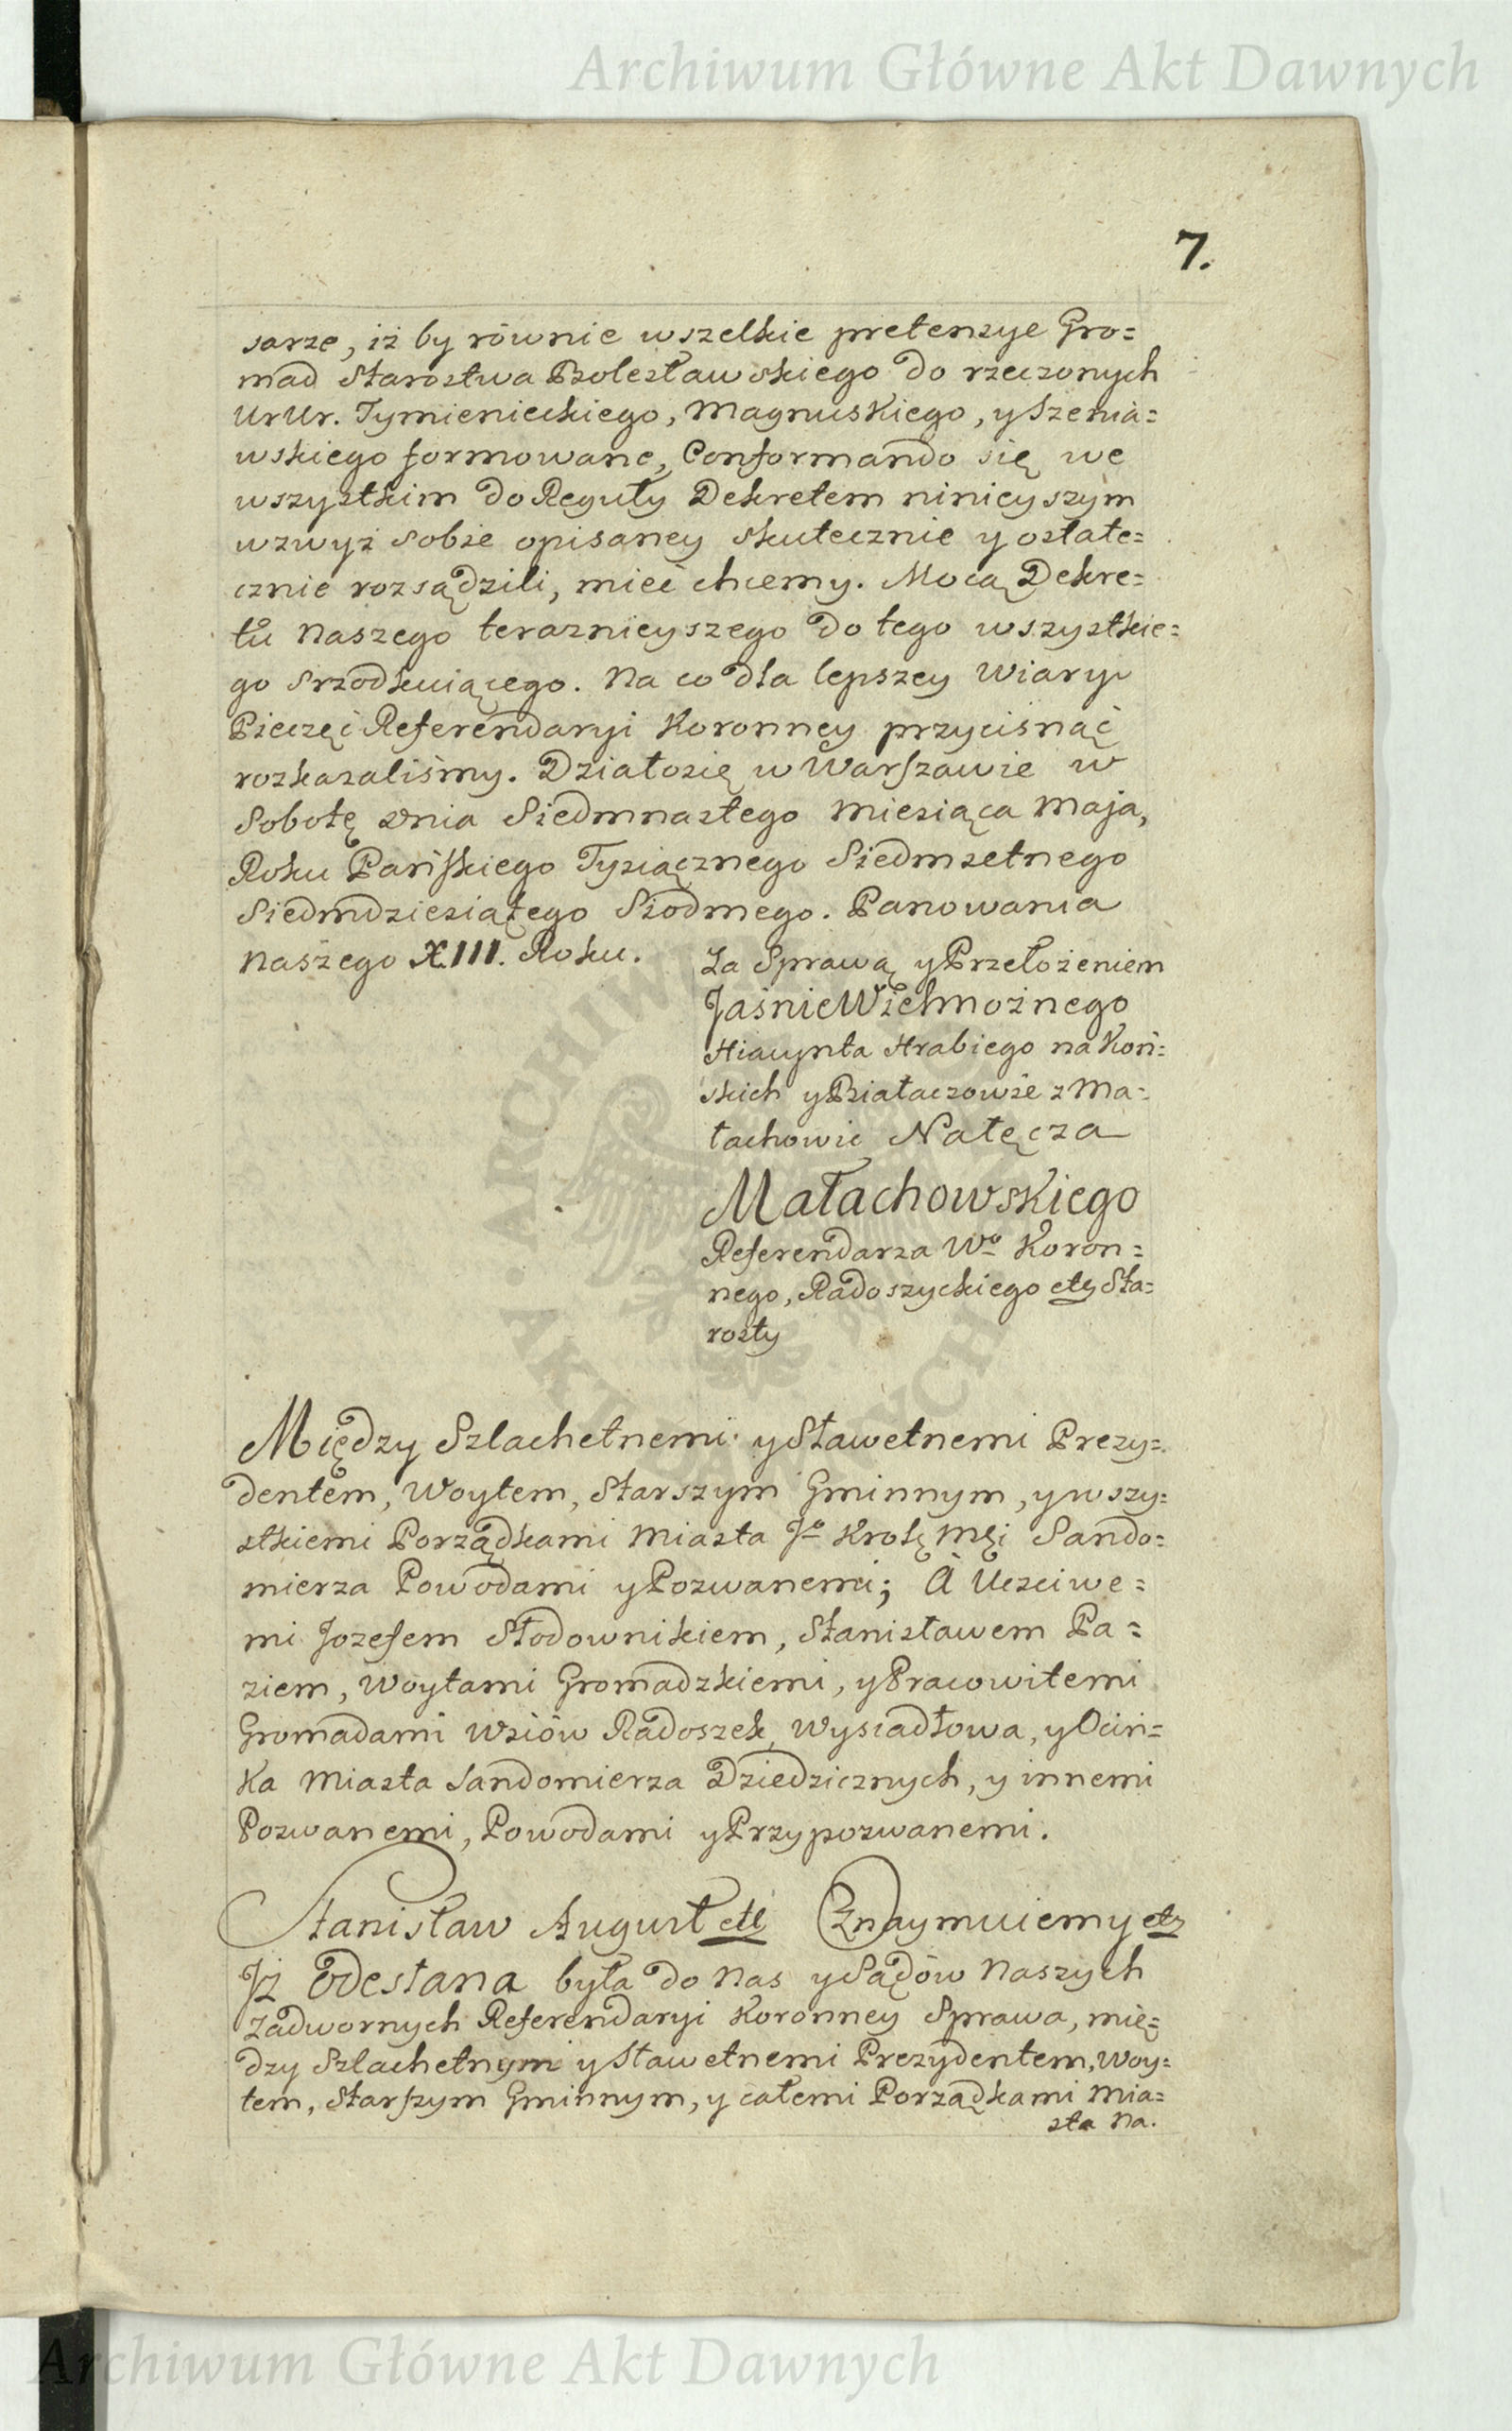 Archiwum Główne Akt Dawnych
7.
sarze, iż by równie wszelkie pretensye Gro=
mad Starostwa Bolesławskiego do rzeczonych
Ur Ur. Tymienieckiego, Magnuskiego, y Szenia=
wskiego formowane, Conformando się we
wszystkim do Reguły Dekretem ninieyszym
wzwyż sobie opisaney skutecznie y ostate=
cznie rozsądzili, mieć chcemy. Mocą Dekre=
tu Naszego teraznieyszego do tego wszystkie=
go srzodkuiącego. Na co dla lepszey Wiary
Pieczęć Referendaryi Koronney przycisnąć
rozkazaliśmy. Działosię w Warszawie w
Sobotę dnia Siedmnastego Miesiąca Maja,
Roku Pańskiego Tysiącznego Siedmsetnego
Siedmdziesiątego Siodmego. Panowania
Naszego XIII. Roku.
Za Sprawą y Przełożeniem
Jaśnie Wielmożnego
Hiacynta Hrabiego na Koń=
skich y Białaczowie z Ma=
łachowic Nałęcza
Małachowskiego
Referendarza Wo Koron=
nego, Radoszyckiego etc Sta=
rosty
Między Szlachetnemi y Sławetnemi Prezy=
dentem, Woytem, Starszym Gminnym, y wszy=
stkiemi Porządkami Miasta Jo Krolę Mći Sando=
mierza Powodami y Pozwanemi; A Uczciwe=
mi Jozefem Słodownikiem, Stanisławem Pa=
ziem, Woytami Gromadzkiemi, y Pracowitemi
Gromadami Wsiów Radoszek, Wysiadłowa, y Ocin=
ka Miasta Sandomierza Dziedzicznych, y innemi
Pozwanemi, Powodami y Przypozwanemi.
Stanisław August etc Oznaymuiemy etc
Iż Odesłana była do Nas y Sądów Naszych
Zadwornych Referendaryi Koronney Sprawa, mię=
dzy Szlachetnymi y Sławetnemi Prezydentem, Woy=
tem, Starszym Gminnym, y całemi Porządkami Mia=
sta Na.
ARCHIWUM AKT DAWNYCH
Archiwum Główne Akt Dawnych